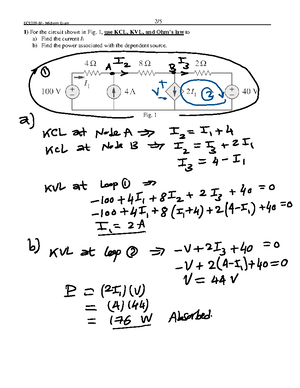 ECE209-80 - Midterm Exam 2/5
1) For the circuit shown in Fig. 1, use KCL, KVL, and Ohm's law to
a) Find the current I₁
b) Find the power associated with the dependent source.
① 4 Ω A I₂ 8 Ω B I₃ 2 Ω
100 V I₁ 4 A V + - 2I₁ ② 40 V
Fig. 1
a)
KCL at Node A ⇒ I₂ = I₁ + 4
KCL at Node B ⇒ I₂ = I₃ + 2I₁
I₃ = 4 - I₁
KVL at Loop ① ⇒
-100 + 4I₁ + 8I₂ + 2I₃ + 40 = 0
-100 + 4I₁ + 8(I₁+4) + 2(4-I₁) + 40 = 0
I₁ = 2A
b) KVL at loop ② ⇒ -V + 2I₃ + 40 = 0
-V + 2(4-I₁) + 40 = 0
V = 44 V
P = (2I₁)(V)
= (4)(44)
= 176 W Absorbed.